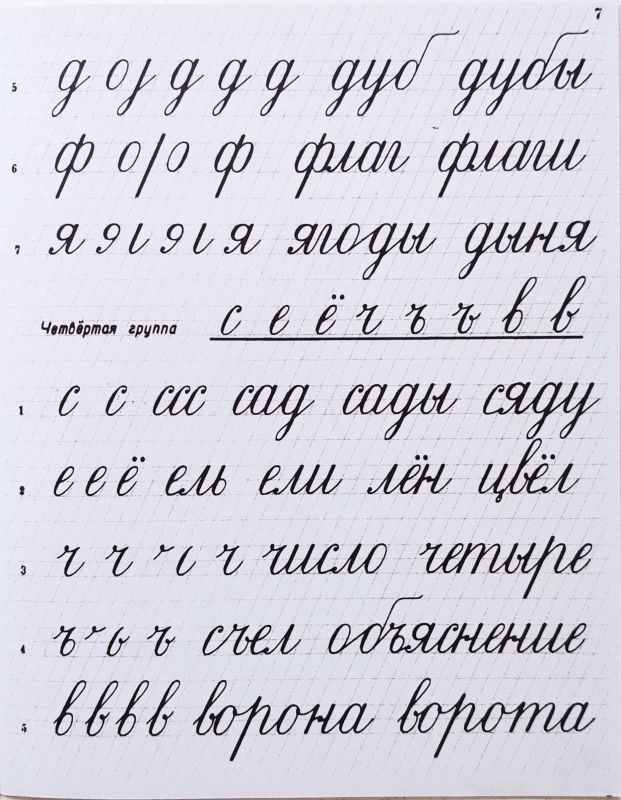 7
5 д о ȷ д д д дуб дубы
6 ф о ſ о ф флаг флаги
7 я э ι э ι я ягоды дыня
Четвёртая группа с е ё ч ъ ъ в в
1 с с ссс сад сады сяду
2 е е ё ель ели лён цвёл
3 ч ч ˜ ι ч число четыре
4 ъ ˜ ь ъ съел объяснение
5 в в в в ворона ворота